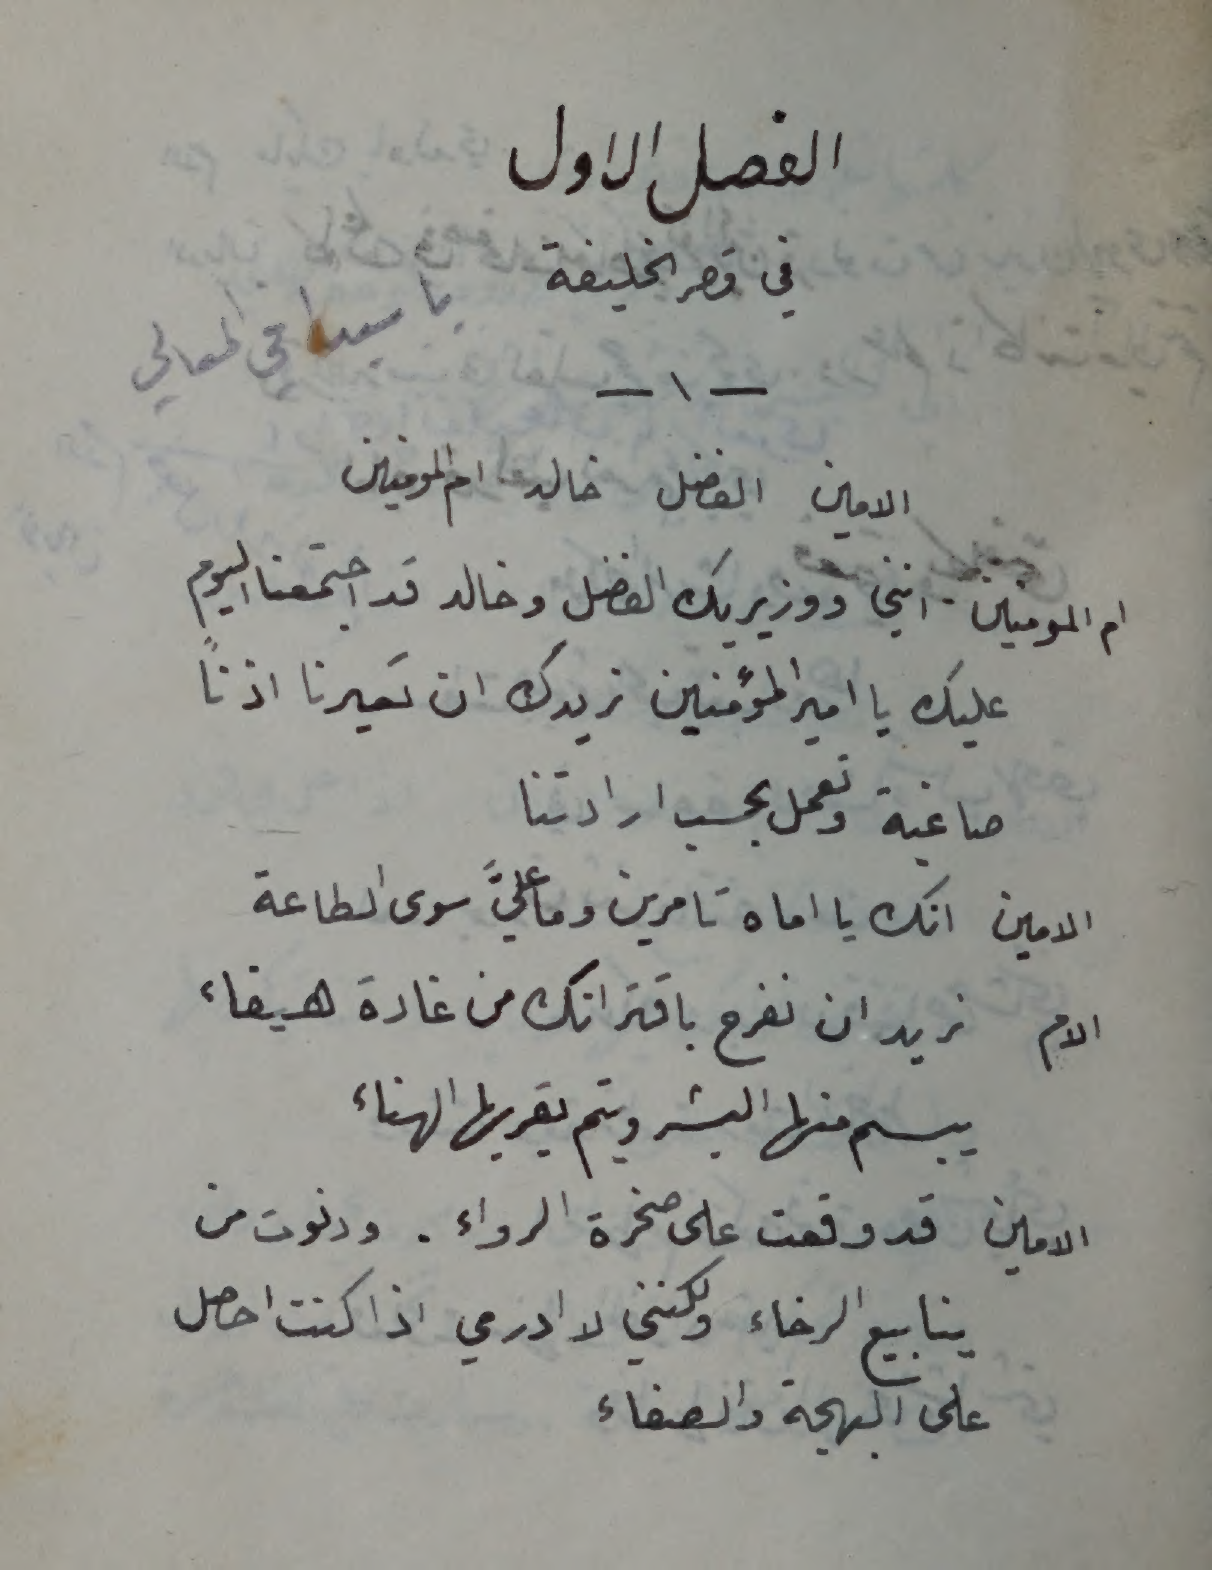 الفصل الاول
في قصر الخليفة
يا سيدا في المعالي
— ١ —
الامين الفضل خالد ام المومنين
ام المومنين. انني ووزيريك الفضل وخالد قد اجتمعنا اليوم
عليك يا امير المؤمنين نريدك ان تعيرنا اذناً
صاغية وتعمل بحسب ارادتنا
الامين انك يا اماه تامرين وما عليَّ سوى الطاعة
الام نريد ان نفرح باقترانك من غادة هيفاء
يبسم منها البشر ويتم بقربها الهناء
الامين قد وقعت على صخرة الرواء . ودنوت من
ينابيع الرخاء ولكنني لا ادري اذا كنت احصل
على البهجة والصفاء